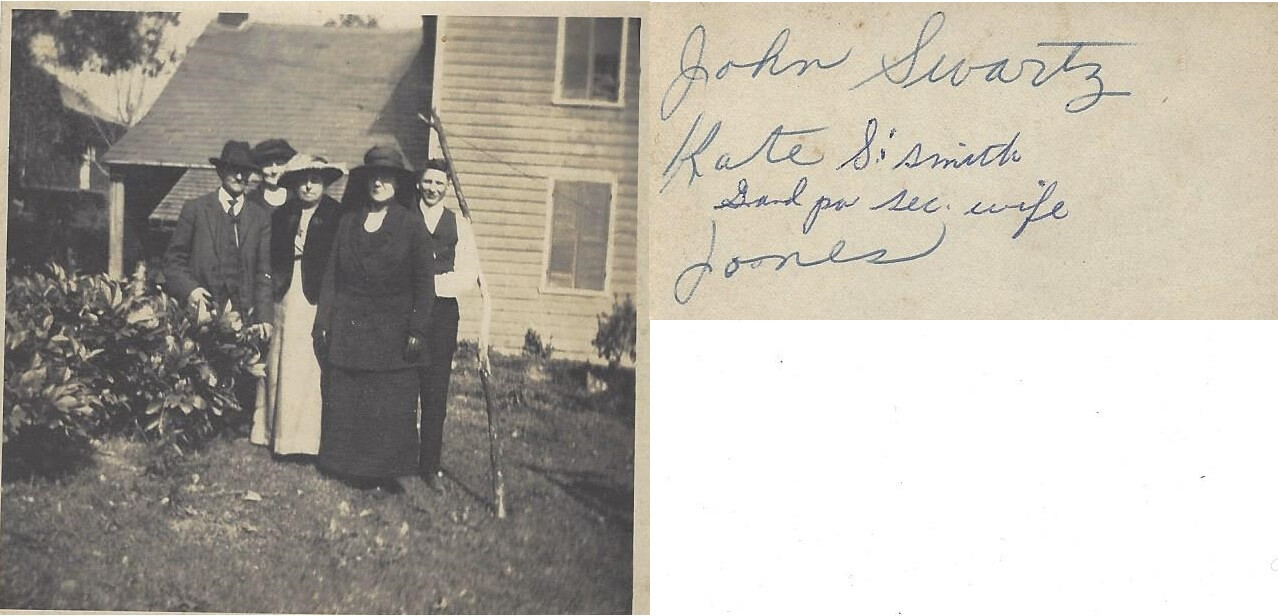 John Swartz
Kate S. Smith
Gand pa sec. wife
Joones